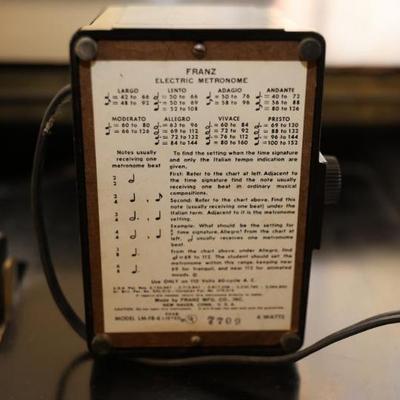 FRANZ
ELECTRIC METRONOME
LARGO LENTO ADAGIO ANDANTE
= 42 to 66 = 50 to 66 = 50 to 76 = 40 to 72
= 48 to 92 = 50 to 69 = 58 to 96 = 56 to 88
= 52 to 108 = 80 to 126
MODERATO ALLEGRO VIVACE PRESTO
= 60 to 80 = 63 to 96 = 60 to 84 = 69 to 120
= 66 to 126 = 69 to 112 = 72 to 92 = 88 to 132
= 72 to 132 = 76 to 112 = 96 to 144
= 84 to 144 = 80 to 160 = 100 to 152
Notes usually
receiving one
metronome beat
To find the setting when the time signature
and only the Italian tempo indication are
given,
First: Refer to the chart at left. Adjacent to
the time signature find the note usually
receiving one beat in ordinary musical
compositions.
Second: Refer to the chart above. Find this
note (usually receiving one beat) under the
Italian term. Adjacent to it is the metronome
setting.
Example: What should be the setting for
time signature, Allegro? From the chart at
left, usually receives one metronome
beat.
From the chart above, under Allegro, find
= 69 to 112. The student should set the
metronome within this range, keeping near
69 for tranquil, and near 112 for animated
moods.
Use ONLY on 110 Volts 60-cycle A. C.
Made by FRANZ MFG. CO., INC.
NEW HAVEN, CONN., U. S. A.
MODEL LM-FB-6 LISTED 7709 4 WATTS